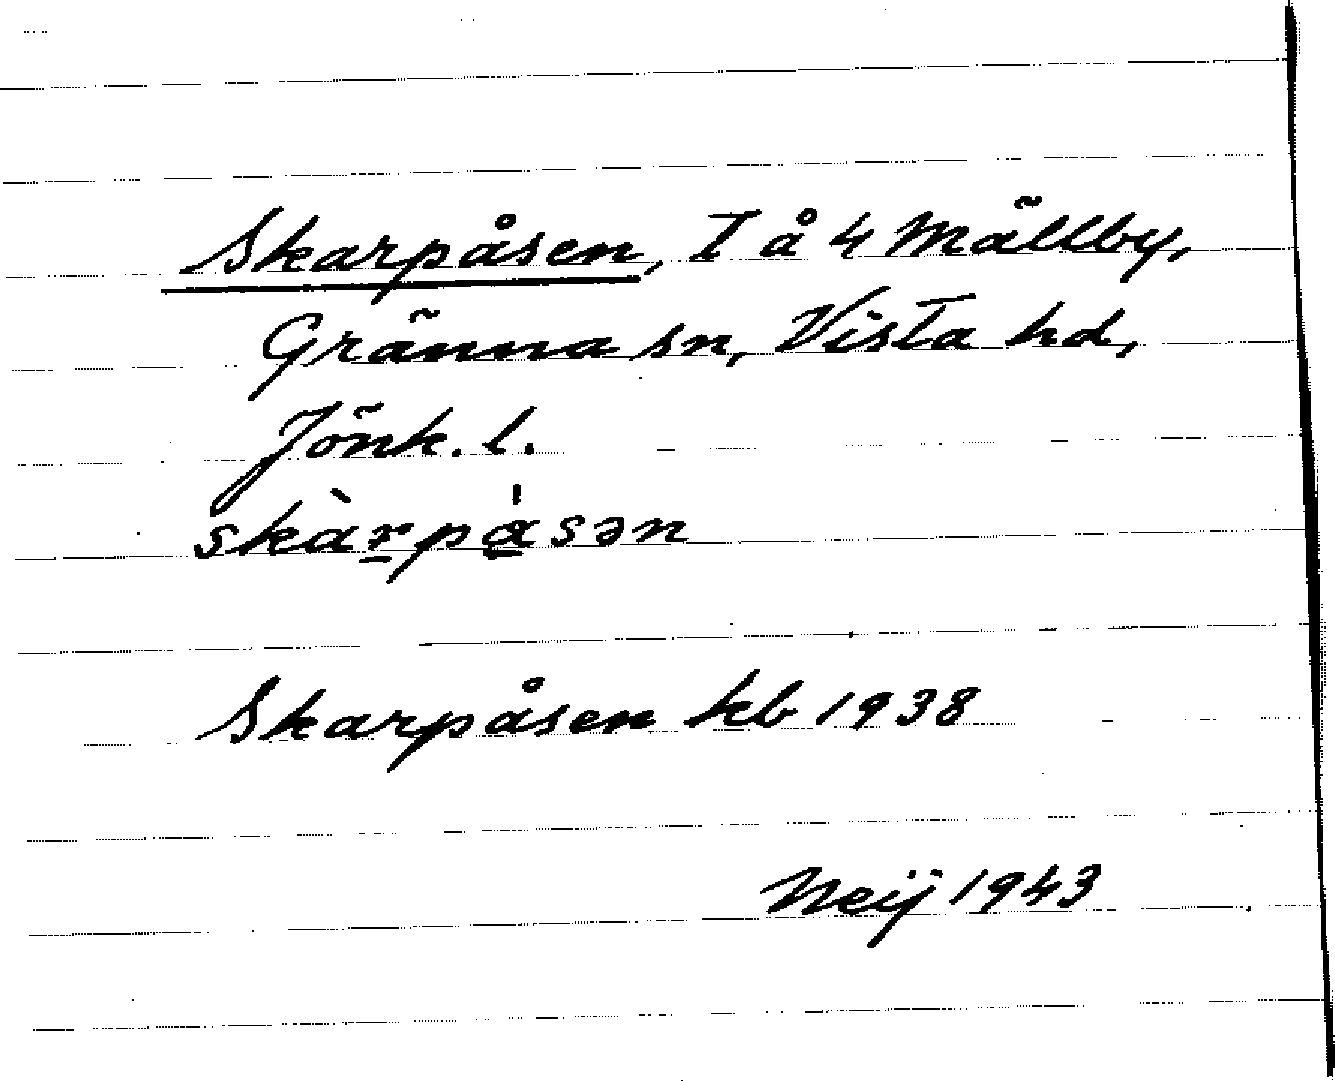 Skarpåsen, T å 4 Mällby,
Gränna sn, Vista hd,
Jönk. l.
skàrpåsən
Skarpåsen kb 1938
Neij 1943